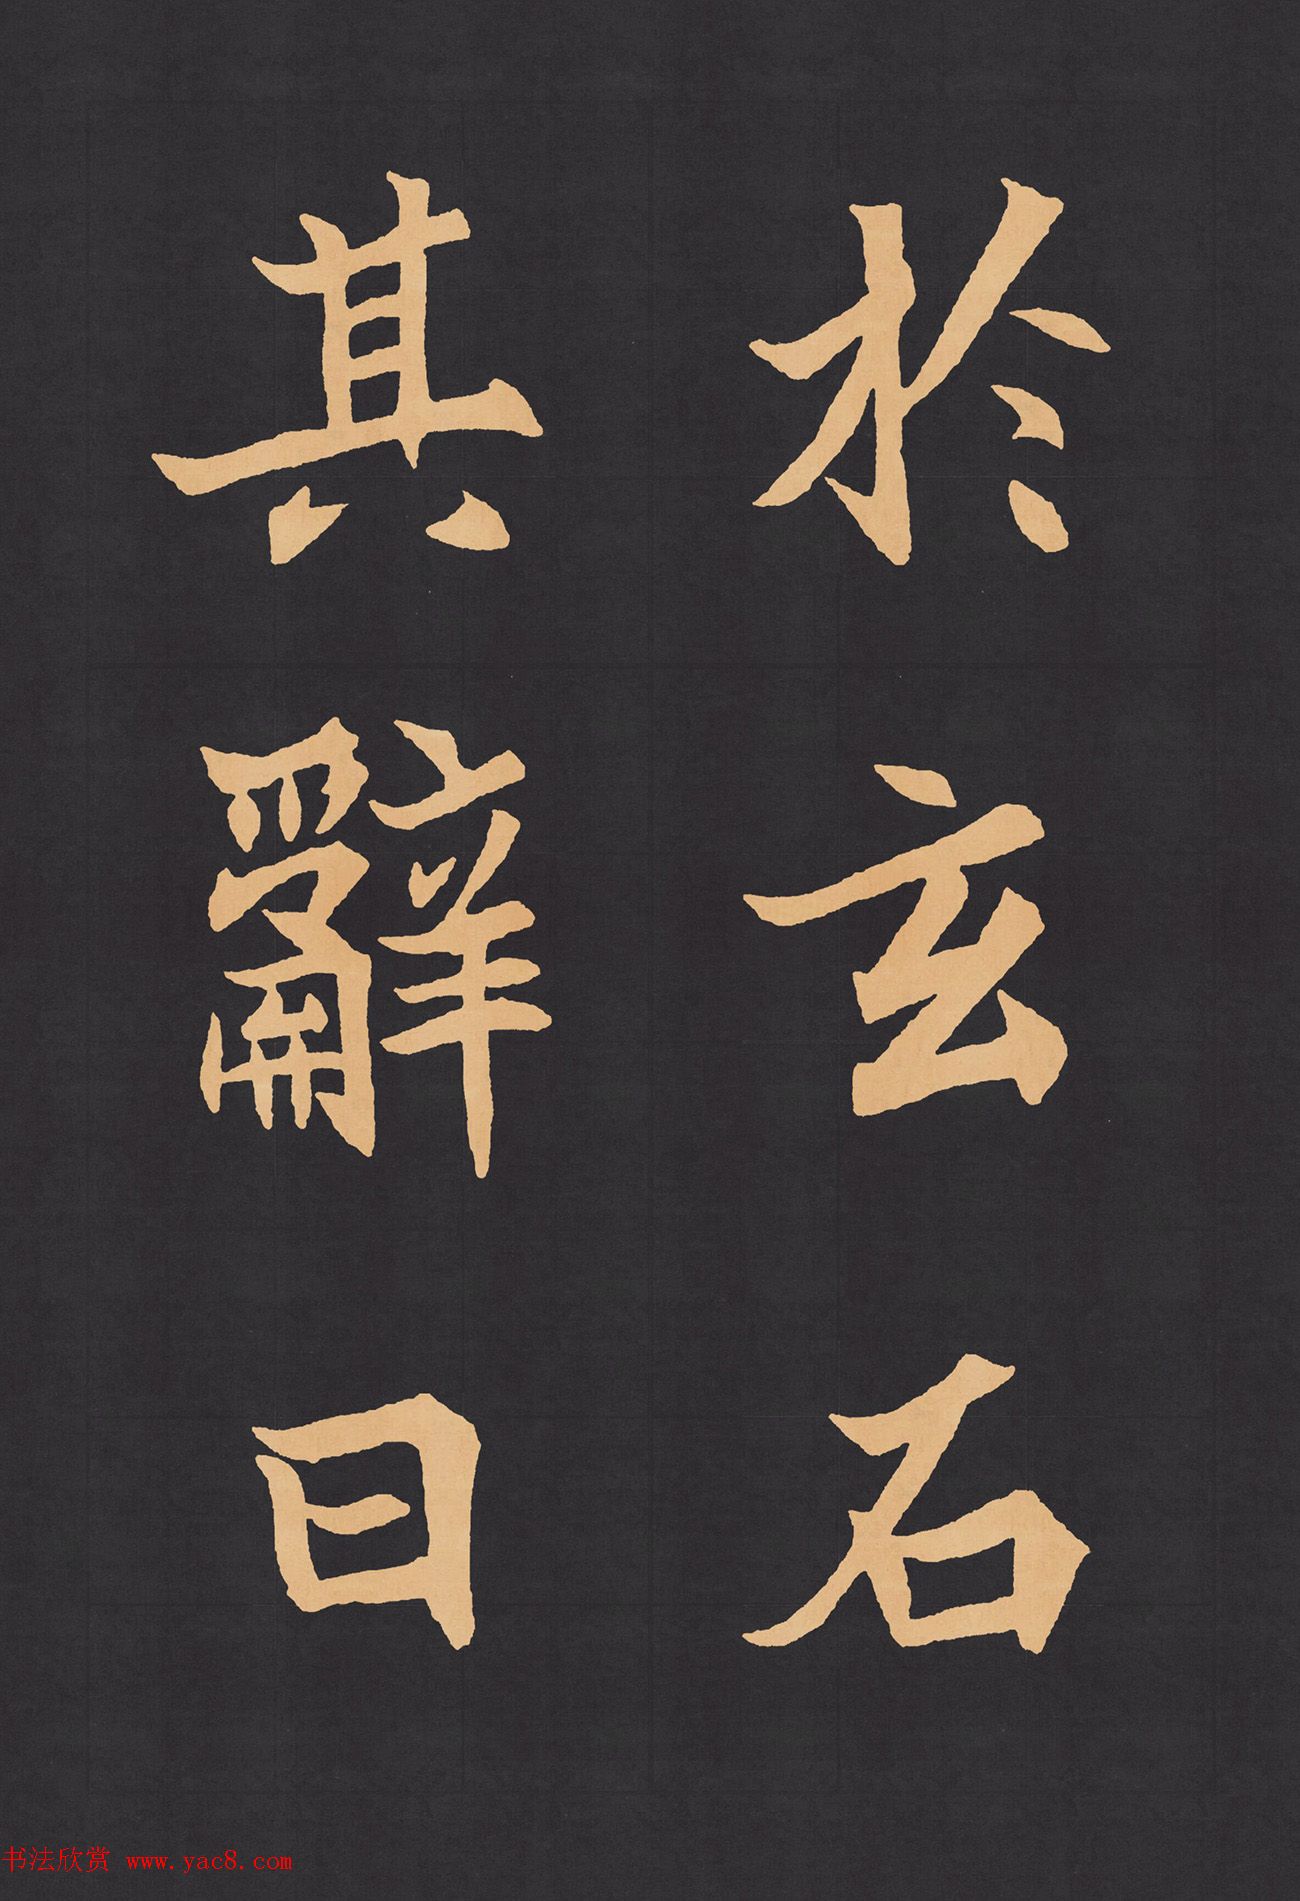 於玄石
其辭曰
书法欣赏 www.yac8.com